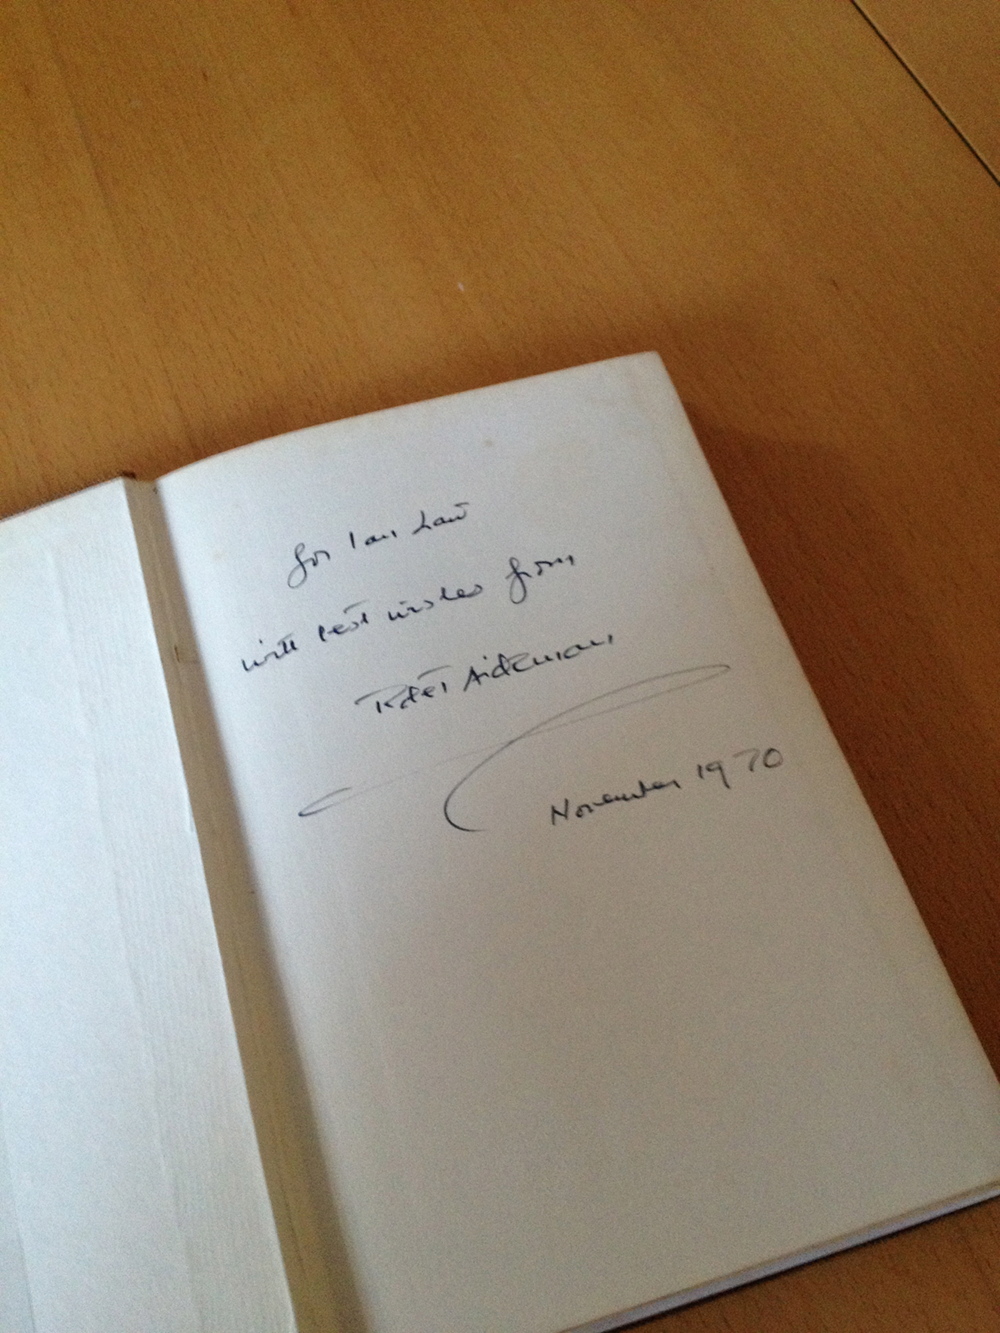 for Ian Law
with best wishes from
Robert Aickman,
November 1970